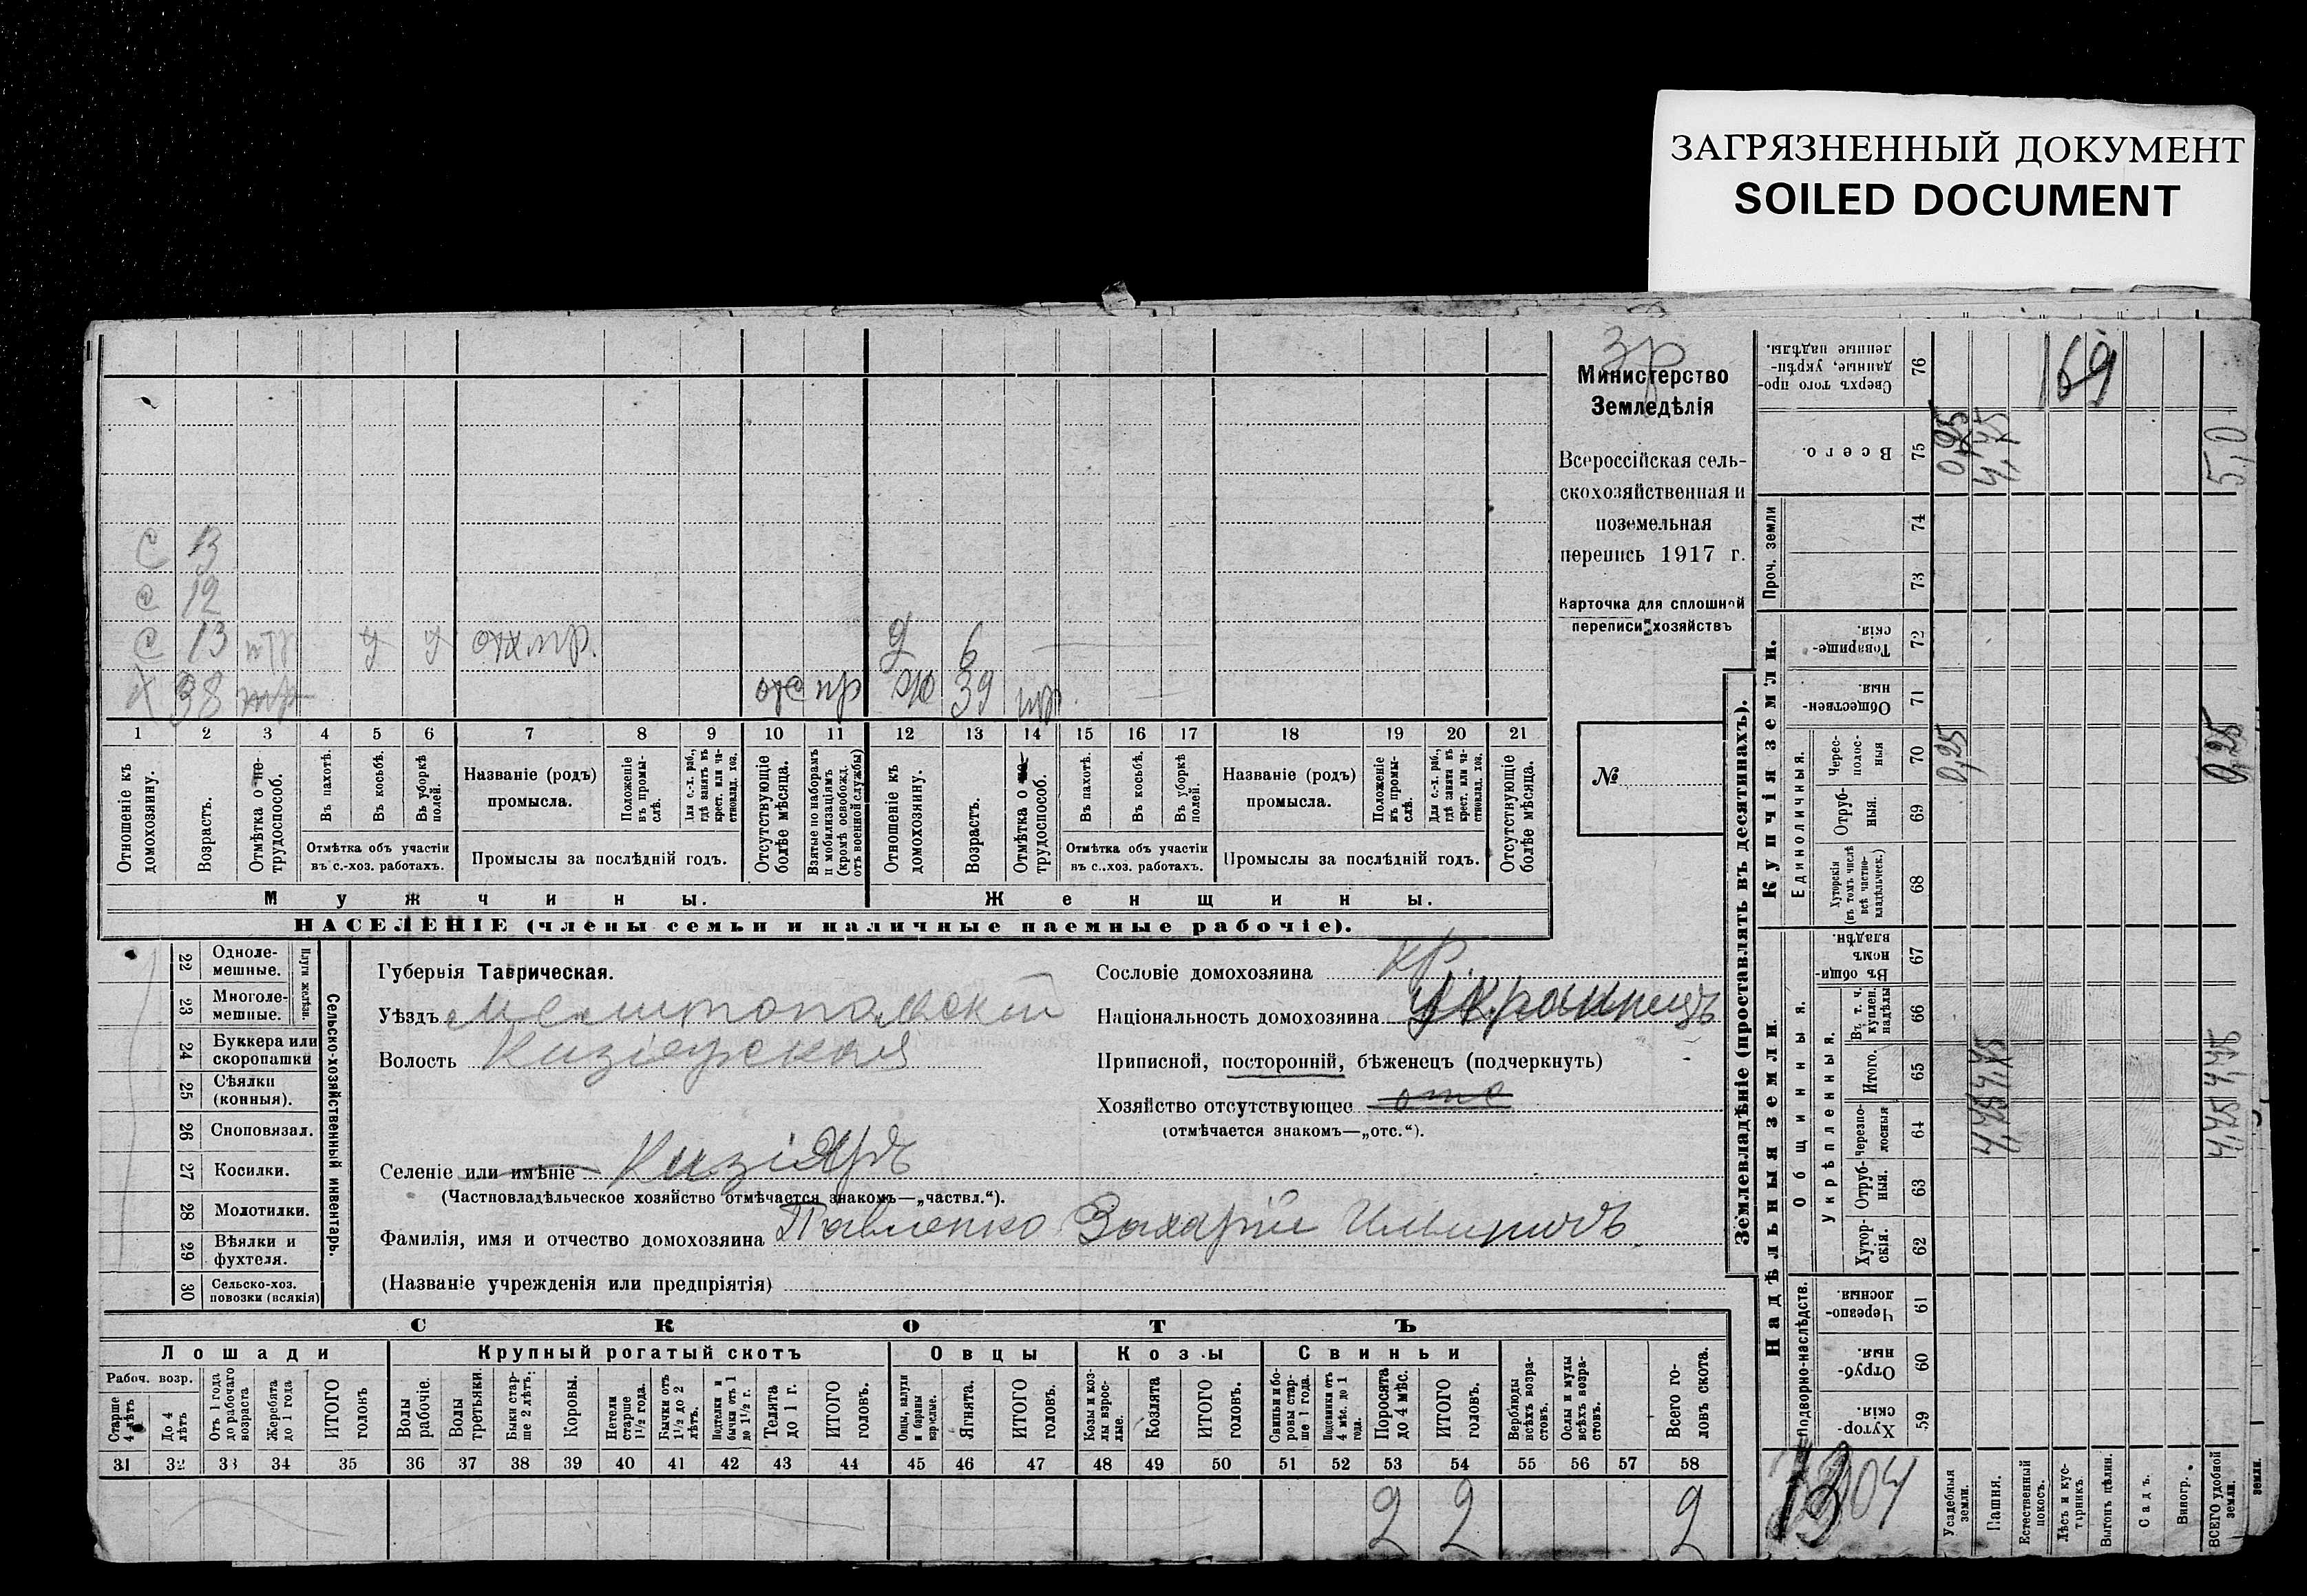 ЗАГРЯЗНЕННЫЙ ДОКУМЕНТ
SOILED DOCUMENT
Зр
Министерство
Земледѣлія
Всероссійская сель-
скохозяйственная и
поземельная
перепись 1917 г.
Карточка для сплошной
переписи хозяйствъ
№
С 13
С 12
С 13 у у
Х 38 отс пр Ж 39
д 6
1 2 3 4 5 6 7 8 9 10 11 12 13 14 15 16 17 18 19 20 21
Отношеніе къ домохозяину.
Возрастъ.
Отмѣтка о не-трудоспособ.
Въ пахотѣ.
Въ косьбѣ.
Въ уборкѣ полей.
Отмѣтка объ участіи въ с.-хоз. работахъ.
Названіе (родъ) промысла.
Положеніе въ промы-слѣ.
Для с.-х. раб., гдѣ занятъ въ крест. или ча-стновлад. хоз.
Промыслы за послѣдній годъ.
Отсутствующіе болѣе мѣсяца.
Взятые по наборамъ и мобилизаціямъ (кромѣ освобожд. отъ военной службы)
Отношеніе къ домохозяину.
Возрастъ.
Отмѣтка о не-трудоспособ.
Въ пахотѣ.
Въ косьбѣ.
Въ уборкѣ полей.
Отмѣтка объ участіи въ с.-хоз. работахъ.
Названіе (родъ) промысла.
Положеніе въ промы-слѣ.
Для с.-х. раб., гдѣ занята въ крест. или ча-стновлад. хоз.
Промыслы за послѣдній годъ.
Отсутствующіе болѣе мѣсяца.
Мужчины.
Женщины.
НАСЕЛЕНІЕ (члены семьи и наличные наемные рабочіе).
Сельско-хозяйственный инвентарь.
Плуги желѣз.
22 Одноле-мешные.
23 Многоле-мешные.
24 Буккера или скоропашки
25 Сѣялки (конныя).
26 Сноповязал.
27 Косилки.
28 Молотилки.
29 Вѣялки и фухтеля.
30 Сельско-хоз. повозки (всякія)
Губернія Таврическая.
Уѣздъ Мелитопольскій
Волость Кизіярская
Селеніе или имѣніе Кизіяръ
(Частновладѣльческое хозяйство отмѣчается знакомъ—„частвл.“).
Фамилія, имя и отчество домохозяина Павленко Захарій
(Названіе учрежденія или предпріятія)
Сословіе домохозяина кр.
Національность домохозяина Украинецъ
Приписной, посторонній, бѣженецъ (подчеркнуть)
Хозяйство отсутствующее отс
(отмѣчается знакомъ—„отс.“).
СКОТЪ
Лошади
Крупный рогатый скотъ
Овцы
Козы
Свиньи
Рабоч. возр.
Старше 4 лѣтъ
До 4 лѣтъ
Отъ 1 года до рабочаго возраста
Жеребята до 1 года
ИТОГО головъ
Волы рабочіе.
Волы третьяки.
Быки стар-ше 2 лѣтъ.
Коровы.
Нетели старше 1½ года.
Бычки отъ 1½ до 2 лѣтъ.
Подтелки и бычки отъ 1 до 1½ г.
Телята до 1 г.
ИТОГО головъ.
Овцы, валухи и бараны взрослые.
Ягнята.
ИТОГО головъ.
Козы и коз-лы взрос-лые.
Козлята
ИТОГО головъ.
Свиньи и бо-ровы стар-ше 1 года.
Подсвинки отъ 4 мѣс. до 1 года.
Поросята до 4 мѣс.
ИТОГО головъ.
Верблюды всѣхъ возра-стовъ.
Ослы и мулы всѣхъ возра-стовъ.
Всего го-ловъ скота.
31 32 33 34 35 36 37 38 39 40 41 42 43 44 45 46 47 48 49 50 51 52 53 54 55 56 57 58
2 2 2
Землевладѣніе (проставлять въ десятинахъ).
Надѣльныя земли.
Купчія земли.
Проч. земли
Подворно-наслѣдств.
Общинныя.
Укрѣпленныя.
Единоличныя.
Хутор-скія. 59
Отруб-ныя. 60
Черезпо-лосныя. 61
Хутор-скія. 62
Отруб-ныя. 63
Черезпо-лосныя 64 4,75 4,75
Итого. 65 4,75 4,75
Въ т. ч. куплен. надѣлы 66
Въ общи-номъ владѣн. 67
Хуторскія (въ томъ числѣ всѣ частно-владѣльческ.) 68
Отруб-ныя. 69
Черес-полос-ныя 70 0,25 0,25
Обществен-ныя. 71
Товарище-скія. 72
73
74
Всего. 75 0,25 4,75 5,0
Сверхъ того про-данные, укрѣп-ленные надѣлы. 76
169
Усадебныя земли.
Пашня.
Естественный покосъ.
Лѣсъ и кус-тарникъ.
Выгонъ цѣлин.
Садъ.
Виногр.
ВСЕГО удобной земли.
земли.